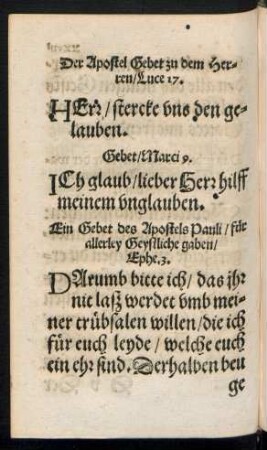 Der Apostel Gebet zu dem Her-
ren/Luce 17.
HErr/stercke vns den ge-
lauben.
Gebet/Marci 9.
ICh glaub/lieber Herr hilff
meinem vnglauben.
Ein Gebet des Apostels Pauli/für
allerley Geystliche gaben/
Ephe.3.
DArumb bitte ich/das jhr
nit lasz werdet vmb mei-
ner trübsalen willen/die ich
für euch leyde/welche euch
ein ehr sind. Derhalben beu
ge